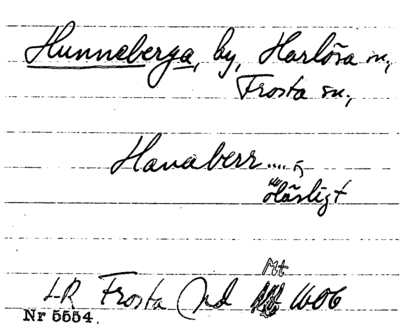 Hunneberga, by, Harlösa sn,
Frosta sn,
Hanaberr....
Oläsligt
LR Frosta 1606
Nr 5554.